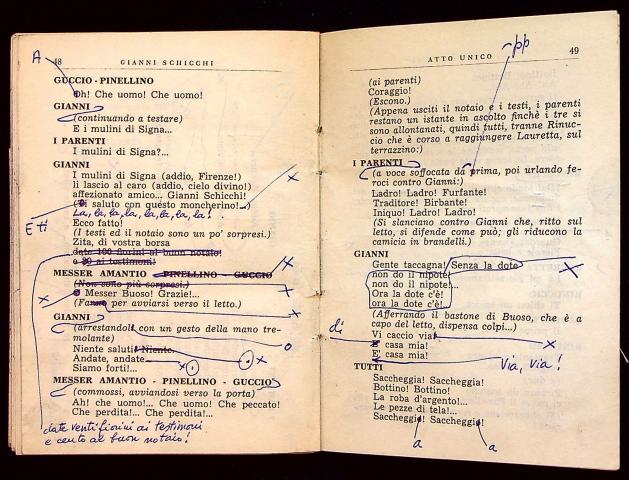 A
48 GIANNI SCHICCHI
GUCCIO - PINELLINO
Oh! Che uomo! Che uomo!
GIANNI
(continuando a testare)
E i mulini di Signa...
I PARENTI
I mulini di Signa?...
GIANNI
I mulini di Signa (addio, Firenze!)
li lascio al caro (addio, cielo divino!)
affezionato amico... Gianni Schicchi!
(Ti saluto con questo moncherino!...
La, la, la, la, la, la, la, la!
E ti
Ecco fatto!
(I testi ed il notaio sono un po' sorpresi.)
Zita, di vostra borsa
date 100 fiorini al buon notaio!
e 20 ai testimoni!
MESSER AMANTIO - PINELLINO - GUCCIO
(Non sono più sorpresi.)
x Messer Buoso! Grazie!... x
(Fanno per avviarsi verso il letto.) x
GIANNI
(arrestandoli con un gesto della mano tre-
molante)
Niente saluti! Niente. o
Andate, andate x
Siamo forti!... x
MESSER AMANTIO - PINELLINO - GUCCIO
(commossi, avviandosi verso la porta)
Ah! che uomo!... Che uomo! Che peccato!
Che perdita!... Che perdita!...
date venti fiorini ai testimoni
e cento al buon notaio!
pp
ATTO UNICO 49
(ai parenti)
Coraggio!
(Escono.)
(Appena usciti il notaio e i testi, i parenti
restano un istante in ascolto finchè i tre si
sono allontanati, quindi tutti, tranne Rinuc-
cio che è corso a raggiungere Lauretta, sul
terrazzino:)
I PARENTI
(a voce soffocata da prima, poi urlando fe-
roci contro Gianni:)
Ladro! Ladro! Furfante!
Traditore! Birbante!
Iniquo! Ladro! Ladro!
(Si slanciano contro Gianni che, ritto sul
letto, si difende come può; gli riducono la
camicia in brandelli.)
GIANNI
Gente taccagna! Senza la dote x
non do il nipote!
non do il nipote!...
Ora la dote c'è!
ora la dote c'è!
(Afferrando il bastone di Buoso, che è a
capo del letto, dispensa colpi...)
Vi caccio via!
di E' casa mia! x
E' casa mia! via, via!
TUTTI
Saccheggia! Saccheggia!
Bottino! Bottino!
La roba d'argento!...
Le pezze di tela!...
Saccheggia! Saccheggia!
a a